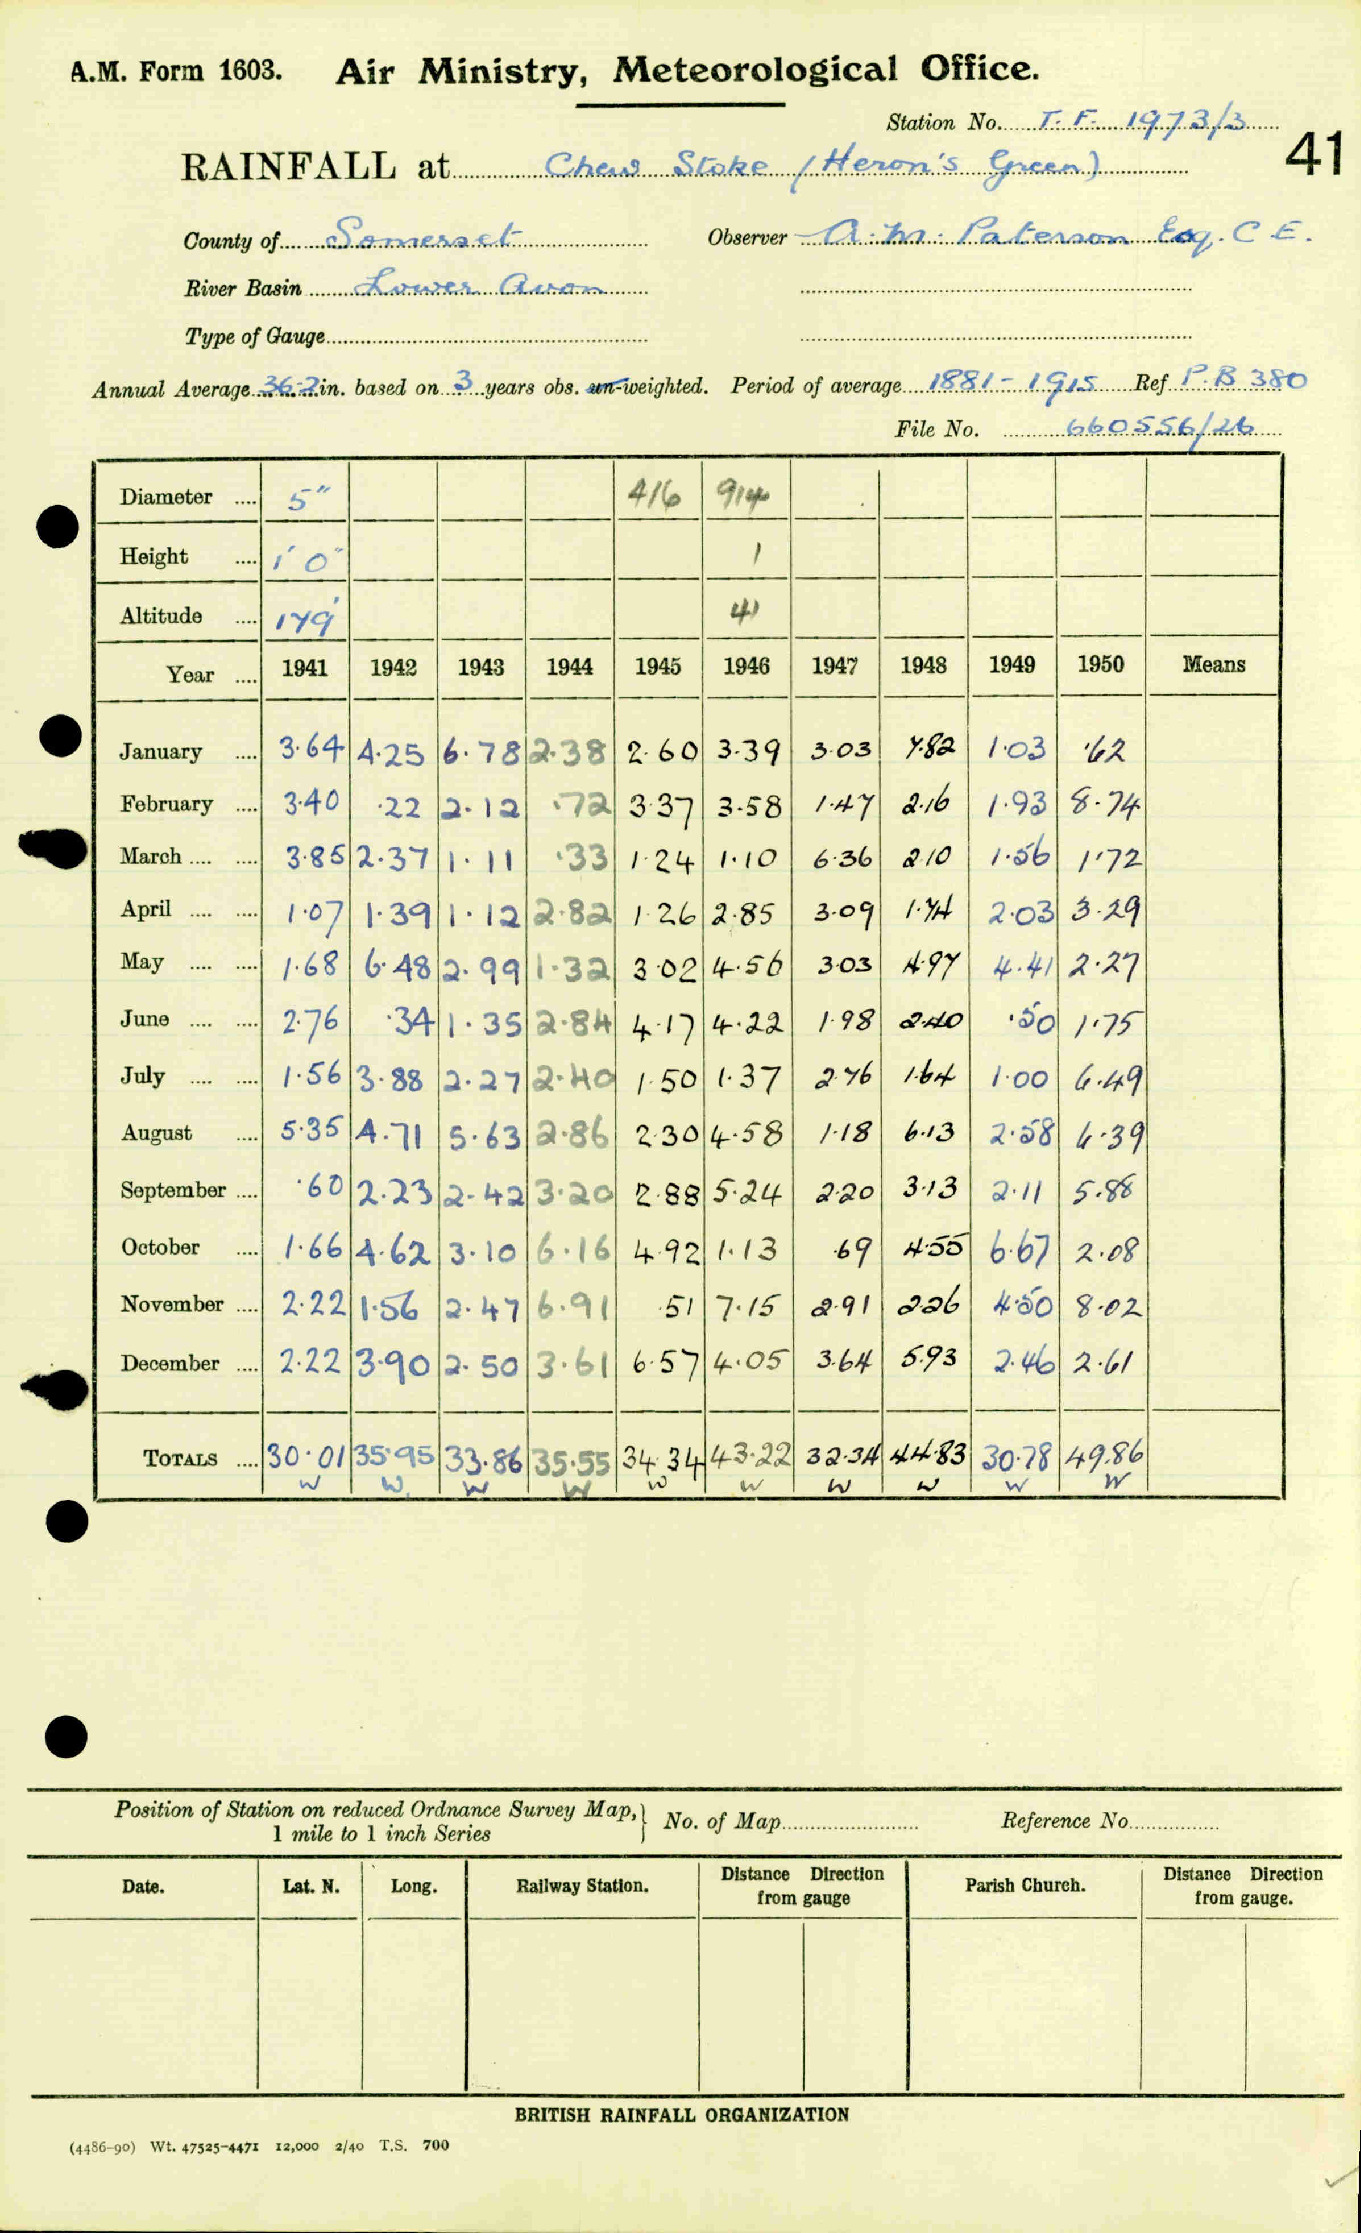 A.M. Form 1603. Air Ministry, Meteorological Office.
Station No. T.F. 1973/3
41
RAINFALL at Chew Stoke (Heron's Green)
County of Somerset Observer A.M. Paterson Esq. C.E.
River Basin Lower Avon
Type of Gauge
Annual Average 36.2 in. based on 3 years obs. un-weighted. Period of average 1881-1915 Ref P.B 380
File No. 660556/26
Diameter .... 5" 416 914
Height .... 1' 0" 1
Altitude .... 179' 41
Year .... 1941 1942 1943 1944 1945 1946 1947 1948 1949 1950 Means
January .... 3.64 4.25 6.78 2.38 2.60 3.39 3.03 7.82 1.03 .62
February .... 3.40 .22 2.12 .72 3.37 3.58 1.47 2.16 1.93 8.74
March .... .... 3.85 2.37 1.11 .33 1.24 1.10 6.36 2.10 1.56 1.72
April .... .... 1.07 1.39 1.12 2.82 1.26 2.85 3.09 1.74 2.03 3.29
May .... .... 1.68 6.48 2.99 1.32 3.02 4.56 3.03 4.97 4.41 2.27
June .... .... 2.76 .34 1.35 2.84 4.17 4.22 1.98 2.40 .50 1.75
July .... .... 1.56 3.88 2.27 2.40 1.50 1.37 2.76 1.64 1.00 6.49
August .... 5.35 4.71 5.63 2.86 2.30 4.58 1.18 6.13 2.58 6.39
September .... .60 2.23 2.42 3.20 2.88 5.24 2.20 3.13 2.11 5.88
October .... 1.66 4.62 3.10 6.16 4.92 1.13 .69 4.55 6.67 2.08
November .... 2.22 1.56 2.47 6.91 .51 7.15 2.91 2.26 4.50 8.02
December .... 2.22 3.90 2.50 3.61 6.57 4.05 3.64 5.93 2.46 2.61
TOTALS .... 30.01 35.95 33.86 35.55 34.34 43.22 32.34 44.83 30.78 49.86
W W W W W W W W W W
Position of Station on reduced Ordnance Survey Map, No. of Map Reference No.
1 mile to 1 inch Series
Date. Lat. N. Long. Railway Station. Distance Direction from gauge Parish Church. Distance Direction from gauge.
BRITISH RAINFALL ORGANIZATION
(4486-90) Wt. 47525-4471 12,000 2/40 T.S. 700